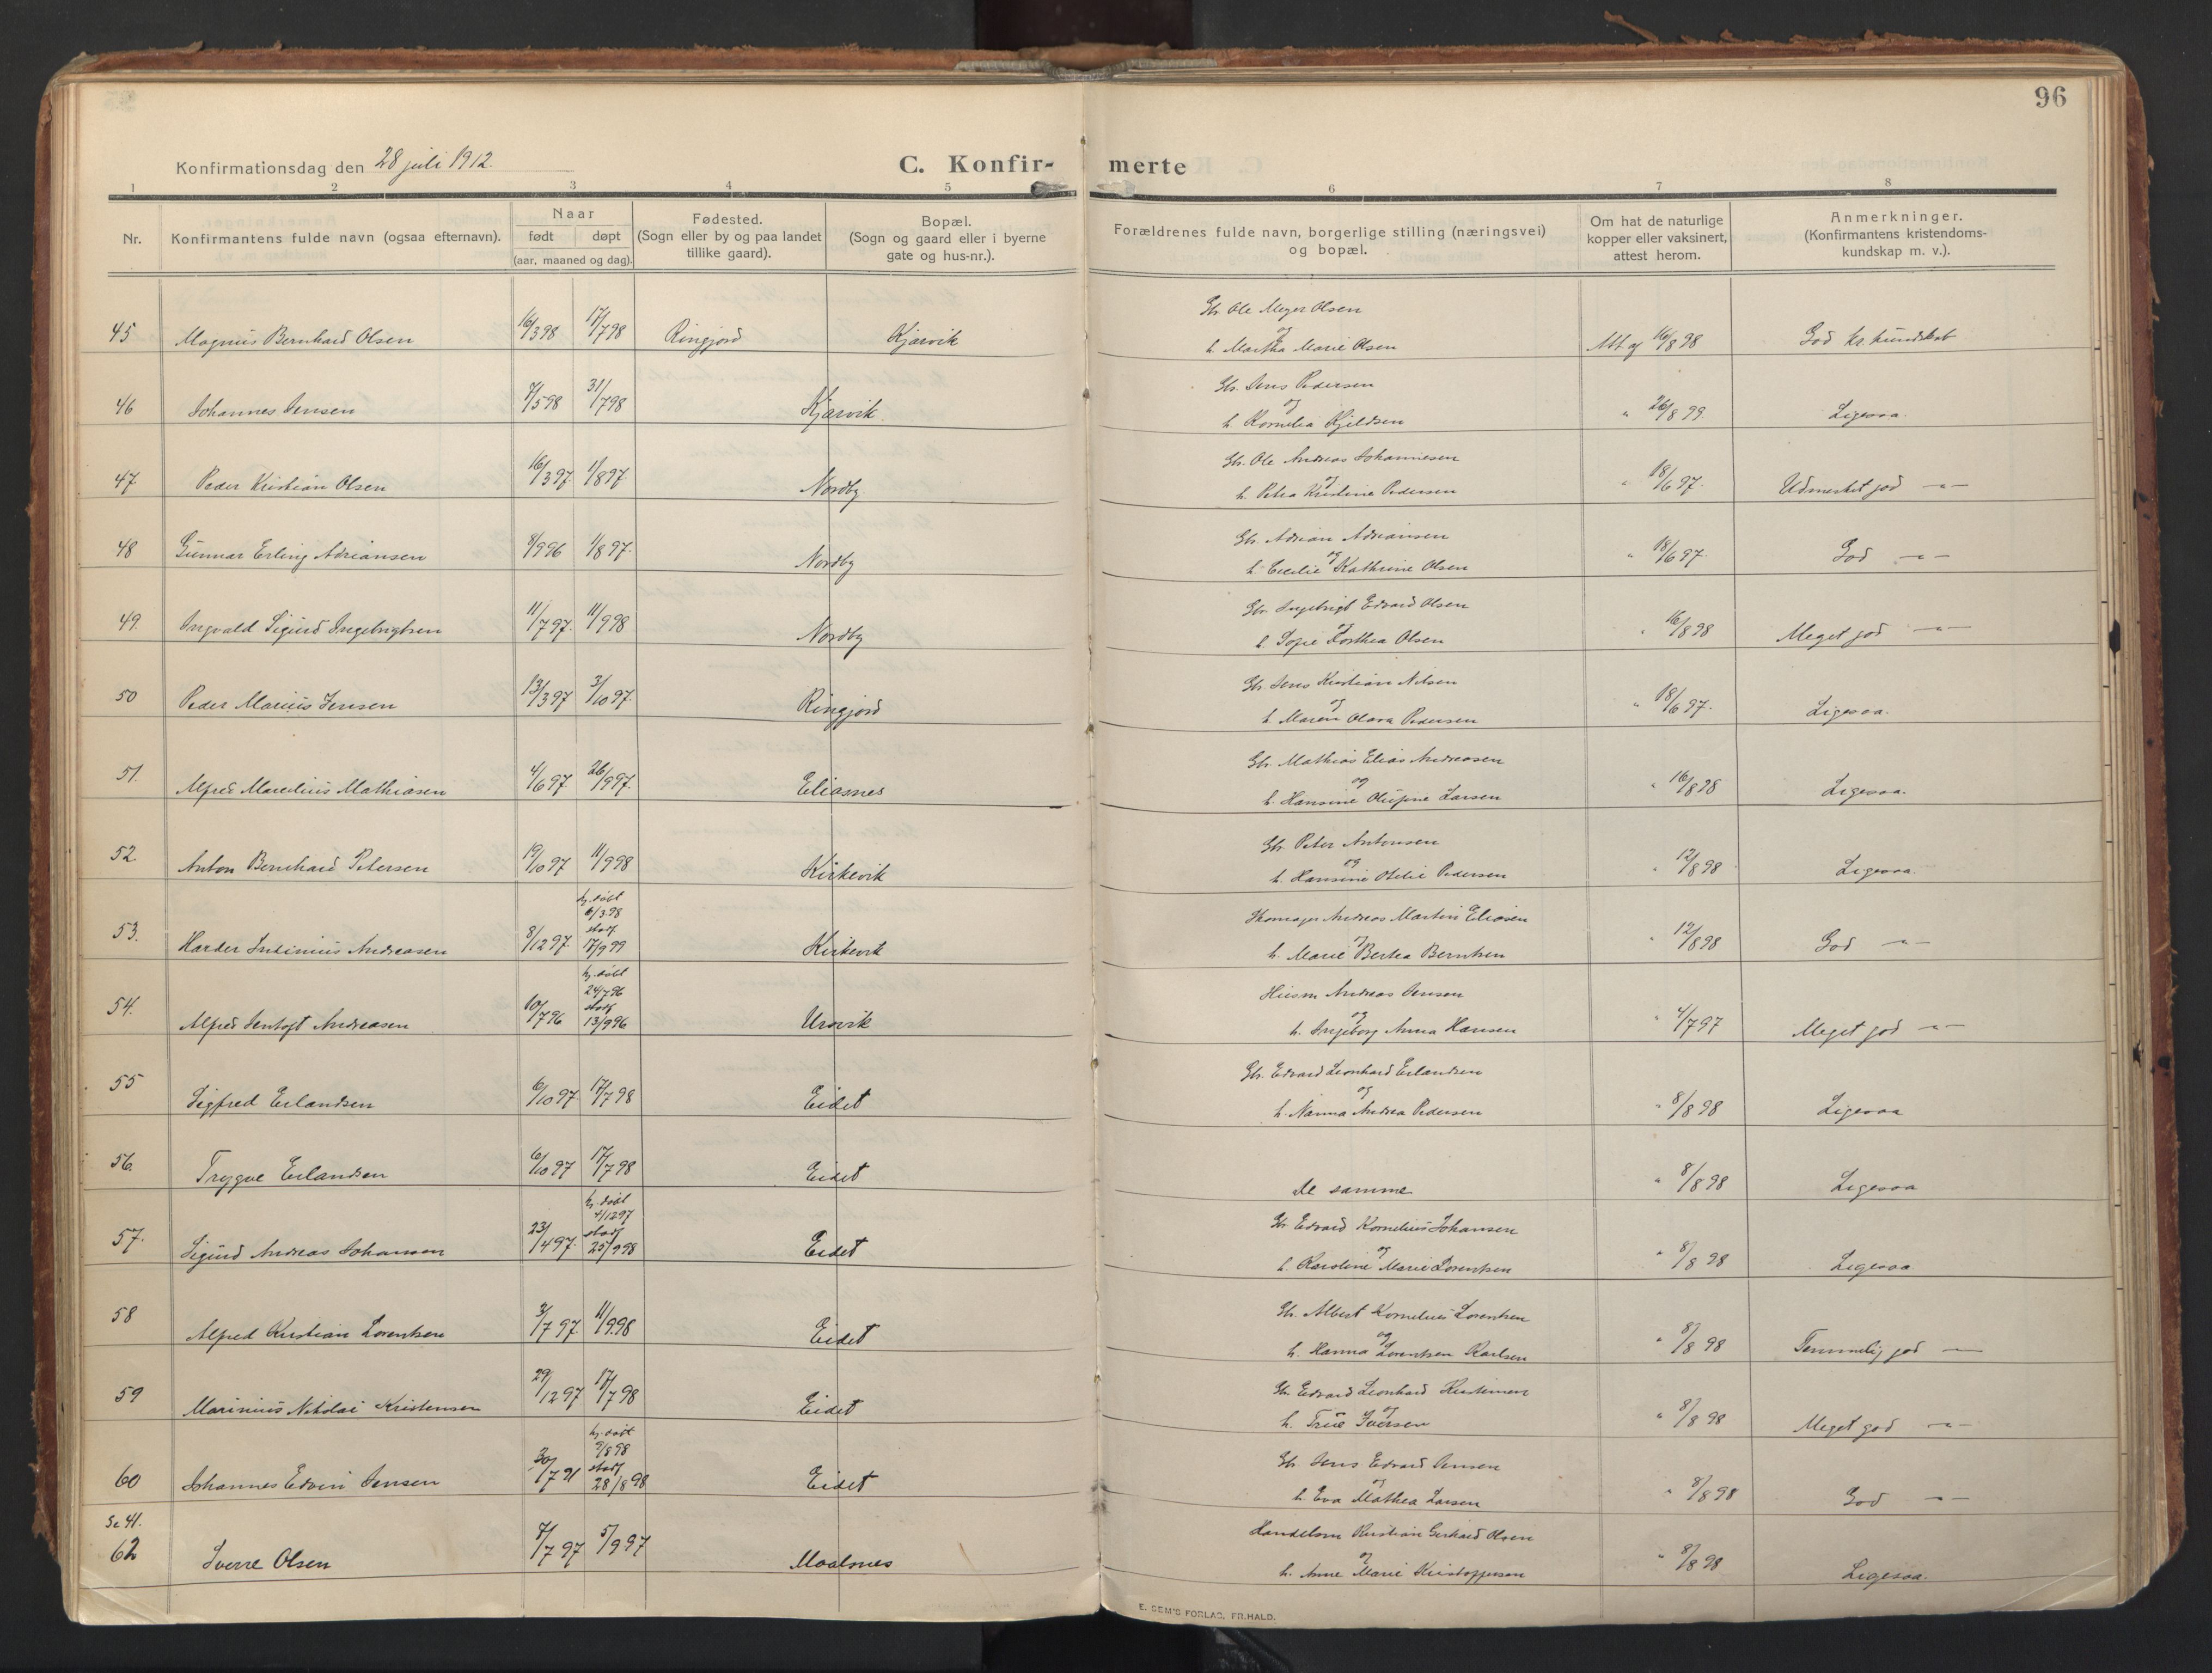 96
Konfirmationsdag den 28 juli 1912.
C. Konfir- merte
1 2 3 4 5 6 7 8
Nr.
Konfirmantens fulde navn (ogsaa efternavn).
Naar
født døpt
(aar, maaned og dag).
Fødested.
(Sogn eller by og paa landet
tillike gaard).
Bopæl.
(Sogn og gaard eller i byerne
gate og hus-nr.).
Forældrenes fulde navn, borgerlige stilling (næringsvei)
og bopæl.
Om hat de naturlige
kopper eller vaksinert,
attest herom.
Anmerkninger.
(Konfirmantens kristendoms-
kundskap m. v.).
Gbr Ole Meyer Olsen
og
45 Magnus Bernhard Olsen 16/3 98 17/7 98 Ringjord Kjærvik h. Martha Marie Olsen Att af 16/8 98 God kr. kundskab
Gbr. Jens Pedersen
og
46 Johannes Jensen 7/5 98 31/7 98 Kjærvik h Kornelia Kjeldsen " 26/8 99 Ligesaa.
Gbr. Ole Andreas Johannesen
og
47 Peder Kristian Olsen 16/3 97 1/8 97 Nordby h. Petra Kristine Pedersen " 18/6 97. Udmerket god — " —
Gbr Adrian Adriansen
og
48 Gunnar Erling Adriansen 8/9 96 1/8 97. Nordby h. Cecilie Kathrine Olsen " 18/6 97. God — " —
Gbr. Ingebrigt Edvard Olsen
og
49. Ingvald Sigurd Ingebrigtsen 11/7 97. 11/9 98 Nordby h. Sofie Dorthea Olsen " 16/8 98 Meget god — " —
Gbr. Jens Kristian Nilsen
og
50 Peder Marius Jensen 13/3 97 3/10 97. Ringjord h Maren Olava Pedersen " 18/6 97. Ligesaa.
Gbr. Mathias Elias Andreasen
og
51. Alfred Marelius Mathiasen 4/6 97 26/9 97. Eliasnes h. Hansine Olufine Larsen " 16/8 98 Ligesaa.
Gbr. Peter Antonsen
og
52. Anton Bernhard Petersen 19/10 97 11/9 98 Kirkevik h. Hansine Otelie Pedersen " 12/8 98 Ligesaa.
hj. døbt
6/3 98
stadf
Skomager Andreas Martin Eliasen
og
53. Harder Andreasen 8/12 97 17/9 99 Kirkevik h. Marie Bertea Berntsen " 12/8 98 God — " —
hj. døbt
24/7 96
stadf
Husm Andreas Jensen
og
54. Alfred Jentoft Andreasen 10/7 96 13/9 96 Urovik h. Ingeborg Anna Hansen " 4/7 97 Meget god — " —
Gbr. Edvard Leonhard Erlandsen
og
55 Sigfred Erlandsen 6/10 97 17/7 98 Eidet h. Nanna Andrea Pedersen " 8/8 98 Ligesaa
56. Trygve Erlandsen 6/10 97 17/7 98 Eidet de samme " 8/8 98 Ligesaa
hj. døbt
4/12 97
stadf
Gbr Edvard Kornelius Johansen
og
57. Sigurd Andreas Johansen 23/4 97. 25/9 98 Eidet h. Karoline Marie Lorentsen " 8/8 98 Ligesaa
Gbr. Albert Kornelius Lorentsen
og
58 Alfred Kristian Lorentsen 3/7 97. 11/9 98 Eidet h. Hanna Lorentsen Karlsen " 8/8 98 Temmelig god —
Gbr. Edvard Leonhard Kristensen
og
59 Marinius Nikolai Kristensen 29/12 97 17/7 98 Eidet h. Trine Iversen " 8/8 98 Meget god — " —
hj. døbt
9/8 98
stadf
Gbr Jens Edvard Jensen
og
60 Johannes Edvin Jensen 30/7 91 28/8 98 Eidet h. Eva Mathea Larsen " 8/8 98 God — " —
Se 41.
Handelsm Kristian Gerhard Olsen
og
62 Sverre Olsen 7/7 97 5/9 97 Maalsnes h. Anne Marie Kristoffersen " 8/8 98 Ligesaa.
E. SEM'S FORLAG, FR.HALD.